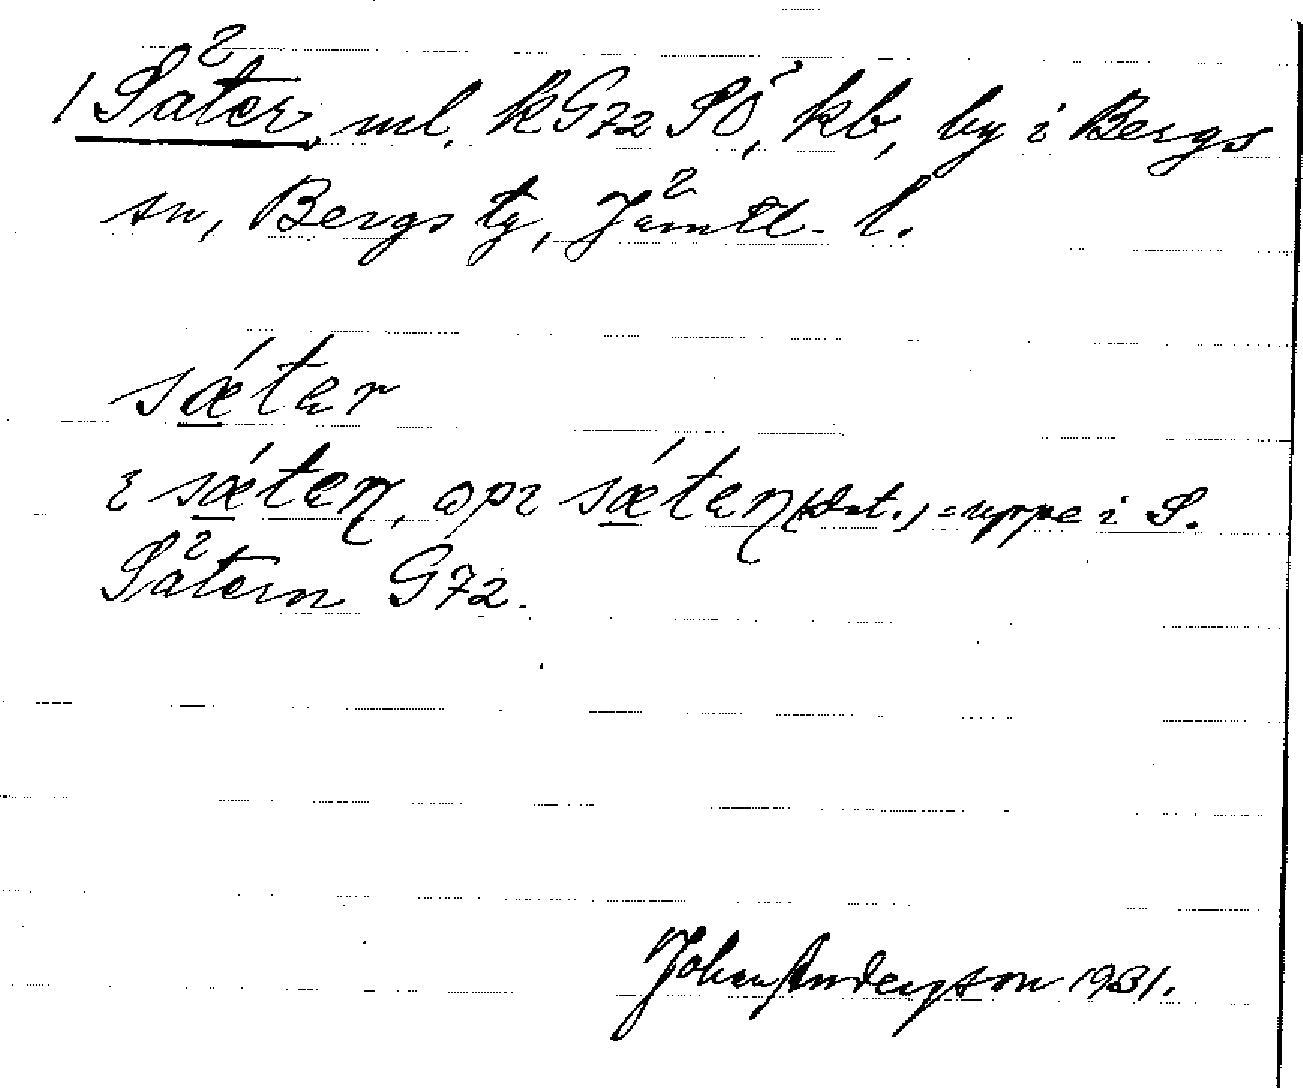 1 Säter, ml, kG72 SÖ, kb, by i Bergs
sn, Bergs tg, Jämtl. l.
sǽter
i sǽten, opi sǽten (dat.) = uppe i S.
Sätern G72.
Johan Anderson 1931.